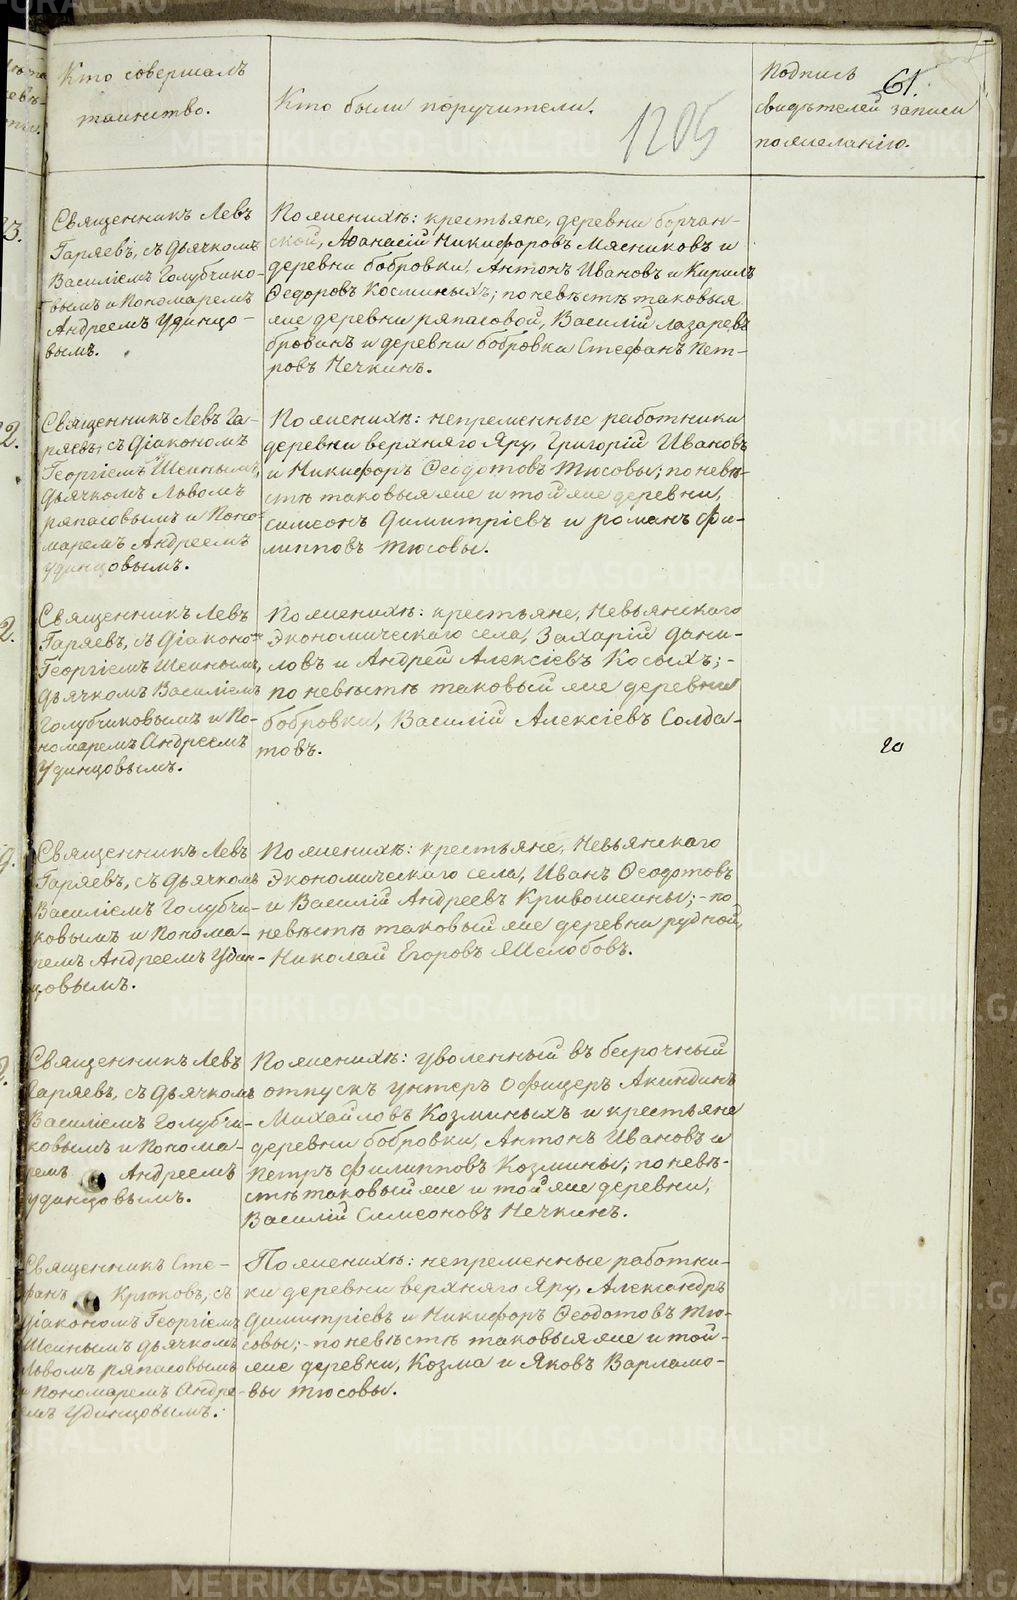 Кто совершалъ
таинство.
Кто были поручители.
1205
Подпись
61.
свидѣтелей записи
по желанію.
Священникъ Левъ
Гаряевъ, съ дьячкомъ
Василіемъ Голубчико-
вымъ и Пономаремъ
Андреемъ Удинцо-
вымъ.
По женихѣ: крестьяне, деревни борчан-
ской, Аѳанасій Никифоровъ Мясниковъ и
деревни бобровки, Антонъ Ивановъ и Кирилъ
Ѳедоровъ Косминыхъ; по невѣстѣ таковыя
же деревни ряпасовой, Василій лазаревъ
бровинъ и деревни бобровки Стефанъ Пет-
ровъ Нечкинъ.
Священникъ Левъ Га-
ряевъ, съ Діакономъ
Георгіемъ Шеинымъ,
дьячкомъ Львомъ
ряпасовымъ и Поно-
маремъ Андреемъ
удинцовымъ.
По женихѣ: непременные работники
деревни верхняго Яру, Григорій Ивановъ
и Никифоръ Ѳеодотовъ Тюсовы; по невѣ-
стѣ таковыя же и той же деревни,
симеонъ Димитріевъ и романъ Фи-
липповъ Тюсовы.
Священникъ Левъ
Гаряевъ, съ Діаконо-
Георгіемъ Шеинымъ,
дьячкомъ Василіемъ
Голубчиковымъ и По-
номаремъ Андреемъ
Удинцовымъ.
По женихѣ: крестьяне, Невьянскаго
Экономическаго села, Захарій Дани-
ловъ и Андрей Алексіевъ Косыхъ; -
по невѣстѣ таковый же деревни
бобровки, Василій Алексіевъ Солда-
товъ.
20
Священникъ Левъ
Гаряевъ, съ дьячкомъ
Василіемъ Голубчи-
ковымъ и Понома-
ремъ Андреемъ Удин-
цовымъ.
По женихѣ: крестьяне, Невьянскаго
Экономическаго села, Иванъ Ѳеодотовъ
и Василій Андреевъ Кривошеины; - по
невѣстѣ таковый же деревни рудной,
Николай Егоровъ Желобовъ.
Священникъ Левъ
Гаряевъ, съ дьячкомъ
Василіемъ Голубчи-
ковымъ и Понома-
ремъ Андреемъ
удинцовымъ.
По женихѣ: уволенный въ безрочный
отпускъ унтеръ Офицеръ Акиндинъ
Михайловъ Козминыхъ и крестьяне
деревни бобровки, Антонъ Ивановъ и
Петръ Филипповъ Козмины; по невѣ-
стѣ таковый же и той же деревни,
Василій Симеоновъ Нечкинъ.
Священникъ Сте-
фанъ Крюковъ, съ
Діакономъ Георгіемъ
Шеинымъ дьячкомъ
Львомъ ряпасовымъ
и Пономаремъ Андре-
емъ Удинцовымъ.
По женихѣ: непременные работни-
ки деревни верхняго Яру, Александръ
Димитріевъ и Никифоръ Ѳеодотовъ Тю-
совы; - по невѣстѣ таковыя же и той-
же деревни, Козма и Яковъ Варламо-
вы Тюсовы.